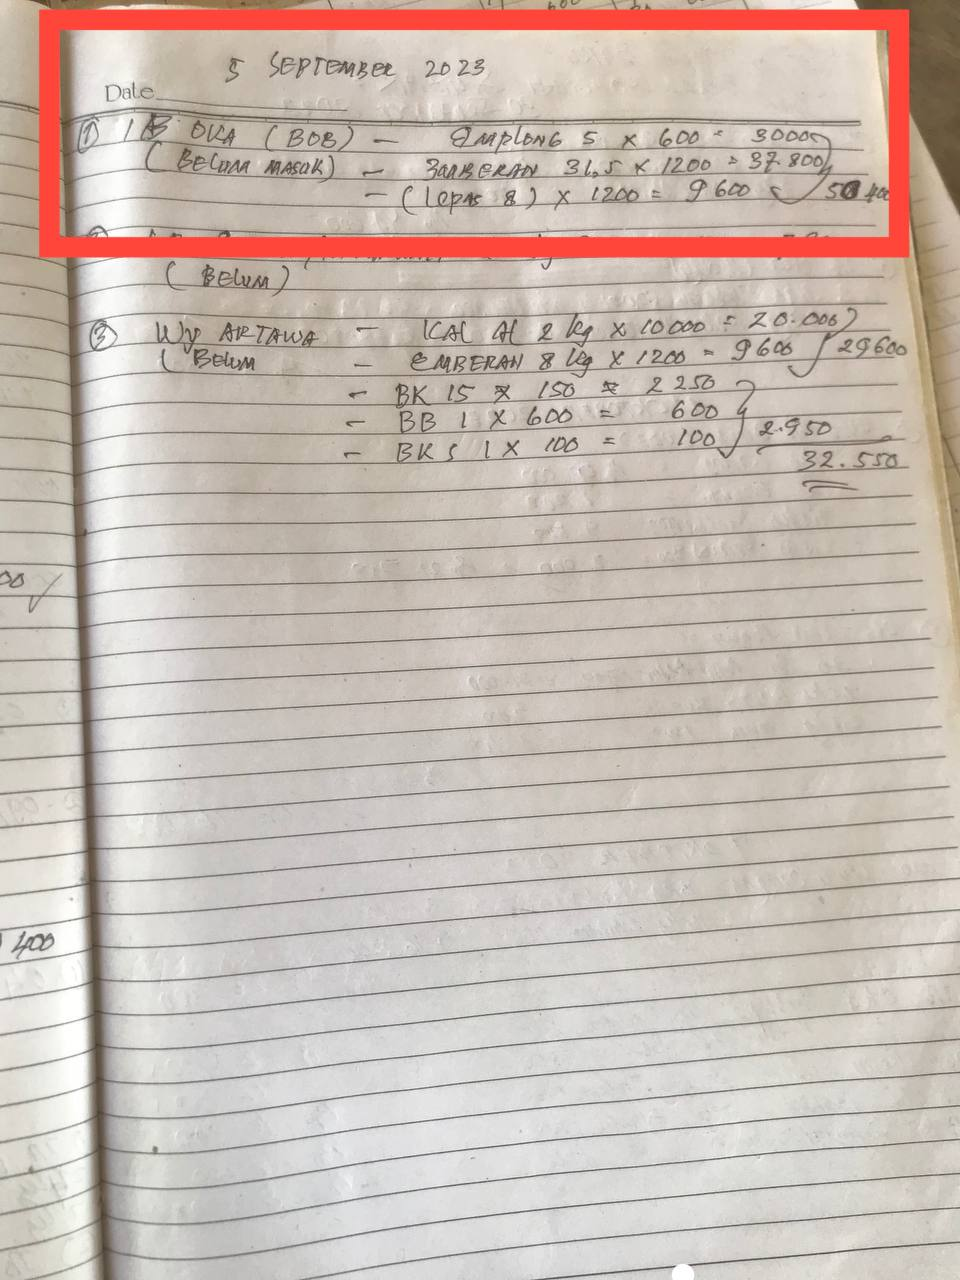 5 SEPTEMBER 2023
Date
① IB OKA (BOB) - EMPLONG 5 x 600 = 3000
(BELUM MASUK) - EMBERAN 31,5 x 1200 = 37.800
- (lepas 8) x 1200 = 9600 50 400
(BELUM)
③ Wy ARTAWA - KAL Al 2 kg x 10000 = 20.000
(BELUM - EMBERAN 8 kg x 1200 = 9600 29600
- BK 15 x 150 = 2250
- BB 1 x 600 = 600
2.950
- BKS 1 x 100 = 100
32.550
00
400